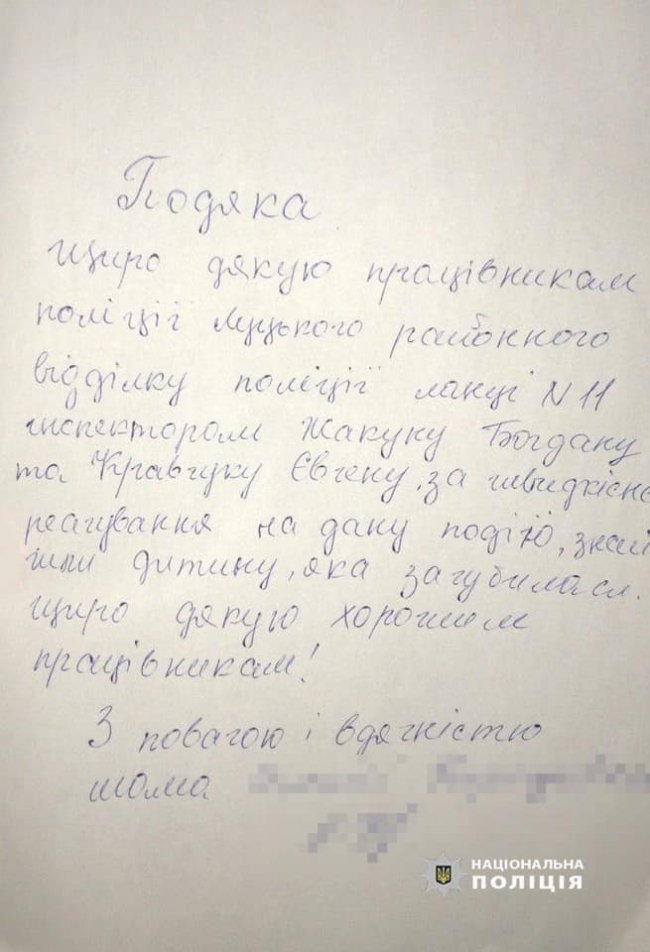 Подяка
Щиро дякую працівникам
поліції Луцького районного
відділку поліції ланці N 11
інспектором Жакуку Богдану
та Кравчуку Євгену, за швидкісне
реагування на дану подію, знай
шли дитину, яка загубилася.
Щиро дякую хорошим
працівникам!
З повагою і вдячністю
мама
НАЦІОНАЛЬНА
ПОЛІЦІЯ